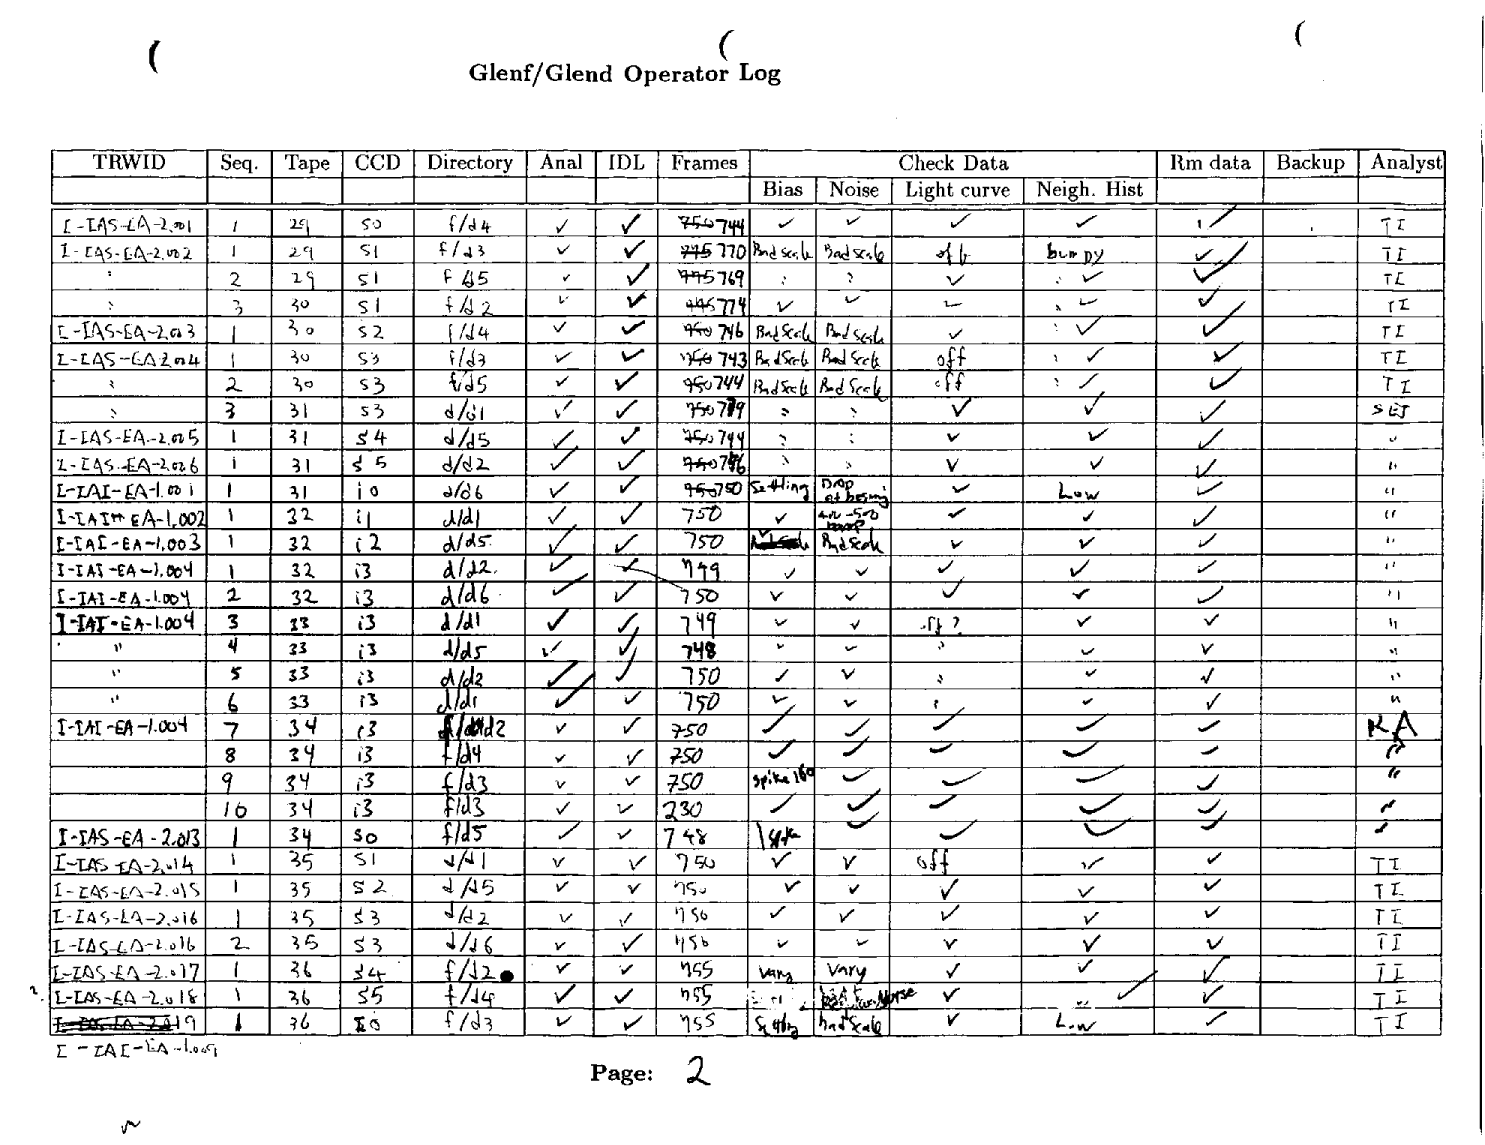 Glenf/Glend Operator Log
TRWID Seq. Tape CCD Directory Anal IDL Frames Check Data Rm data Backup Analyst
Bias Noise Light curve Neigh. Hist
I-IAS-EA-2.001 1 29 S0 f/d4 ✓ ✓ 750 744 ✓ ✓ ✓ ✓ ✓ TI
I-IAS-EA-2.002 1 29 S1 f/d3 ✓ ✓ 775 770 Bad Scale Bad Scale off bumpy ✓ TI
" 2 29 S1 f/d5 ✓ ✓ 775 769 " " ✓ ✓ ✓ TI
" 3 30 S1 f/d2 ✓ ✓ 774 ✓ ✓ ✓ ✓ ✓ TI
I-IAS-EA-2.003 1 30 S2 f/d4 ✓ ✓ 750 746 Bad Scale Bad Scale ✓ ✓ ✓ TI
I-IAS-EA-2.004 1 30 S3 f/d3 ✓ ✓ 750 743 Bad Scale Bad Scale off ✓ ✓ TI
" 2 30 S3 f/d5 ✓ ✓ 750 744 Bad Scale Bad Scale off ✓ ✓ TI
" 3 31 S3 d/d1 ✓ ✓ 750 " " ✓ ✓ ✓ SEJ
I-IAS-EA-2.005 1 31 S4 d/d5 ✓ ✓ 750 744 " " ✓ ✓ ✓ "
I-IAS-EA-2.006 1 31 S5 d/d2 ✓ ✓ 750 746 " " ✓ ✓ ✓ "
I-IAI-EA-1.001 1 31 i0 d/d6 ✓ ✓ 750 Settling Drop at ✓ Low ✓ "
I-IAI-EA-1.002 1 32 i1 d/d1 ✓ ✓ 750 ✓ ✓ ✓ ✓ "
I-IAI-EA-1.003 1 32 i2 d/d5 ✓ ✓ 750 Bad Scale ✓ ✓ ✓ "
I-IAI-EA-1.004 1 32 i3 d/d2 ✓ ✓ 749 ✓ ✓ ✓ ✓ ✓ "
I-IAI-EA-1.004 2 32 i3 d/d6 ✓ ✓ 750 ✓ ✓ ✓ ✓ ✓ "
I-IAI-EA-1.004 3 33 i3 d/d1 ✓ ✓ 749 ✓ ✓ off? ✓ ✓ "
" 4 33 i3 d/d5 ✓ ✓ 748 ✓ ✓ " ✓ ✓ "
" 5 33 i3 d/d2 ✓ ✓ 750 ✓ ✓ " ✓ ✓ "
" 6 33 i3 d/d1 ✓ ✓ 750 ✓ ✓ " ✓ ✓ "
I-IAI-EA-1.004 7 34 i3 f/d2 ✓ ✓ 750 ✓ ✓ ✓ ✓ ✓ RA
8 34 i3 f/d4 ✓ ✓ 750 ✓ ✓ ✓ ✓ ✓ "
9 34 i3 f/d3 ✓ ✓ 750 spike 160 ✓ ✓ ✓ ✓ "
10 34 i3 f/d3 ✓ ✓ 230 ✓ ✓ ✓ ✓ ✓ "
I-IAS-EA-2.013 1 34 S0 f/d5 ✓ ✓ 748 ✓ ✓ ✓ ✓ "
I-IAS-EA-2.014 1 35 S1 d/d1 ✓ ✓ 750 ✓ ✓ off ✓ ✓ TI
I-IAS-EA-2.015 1 35 S2 d/d5 ✓ ✓ 750 ✓ ✓ ✓ ✓ ✓ TI
I-IAS-EA-2.016 1 35 S3 d/d2 ✓ ✓ 750 ✓ ✓ ✓ ✓ ✓ TI
I-IAS-EA-2.016 2 35 S3 d/d6 ✓ ✓ 750 ✓ ✓ ✓ ✓ ✓ TI
I-IAS-EA-2.017 1 36 S4 f/d2 ✓ ✓ 755 Vary Vary ✓ ✓ ✓ TI
I-IAS-EA-2.018 1 36 S5 f/d4 ✓ ✓ 755 ✓ ✓ ✓ TI
19 1 36 I0 f/d3 ✓ ✓ 755 Settling bad scale ✓ Low ✓ TI
I-IAI-EA-1.009
Page: 2